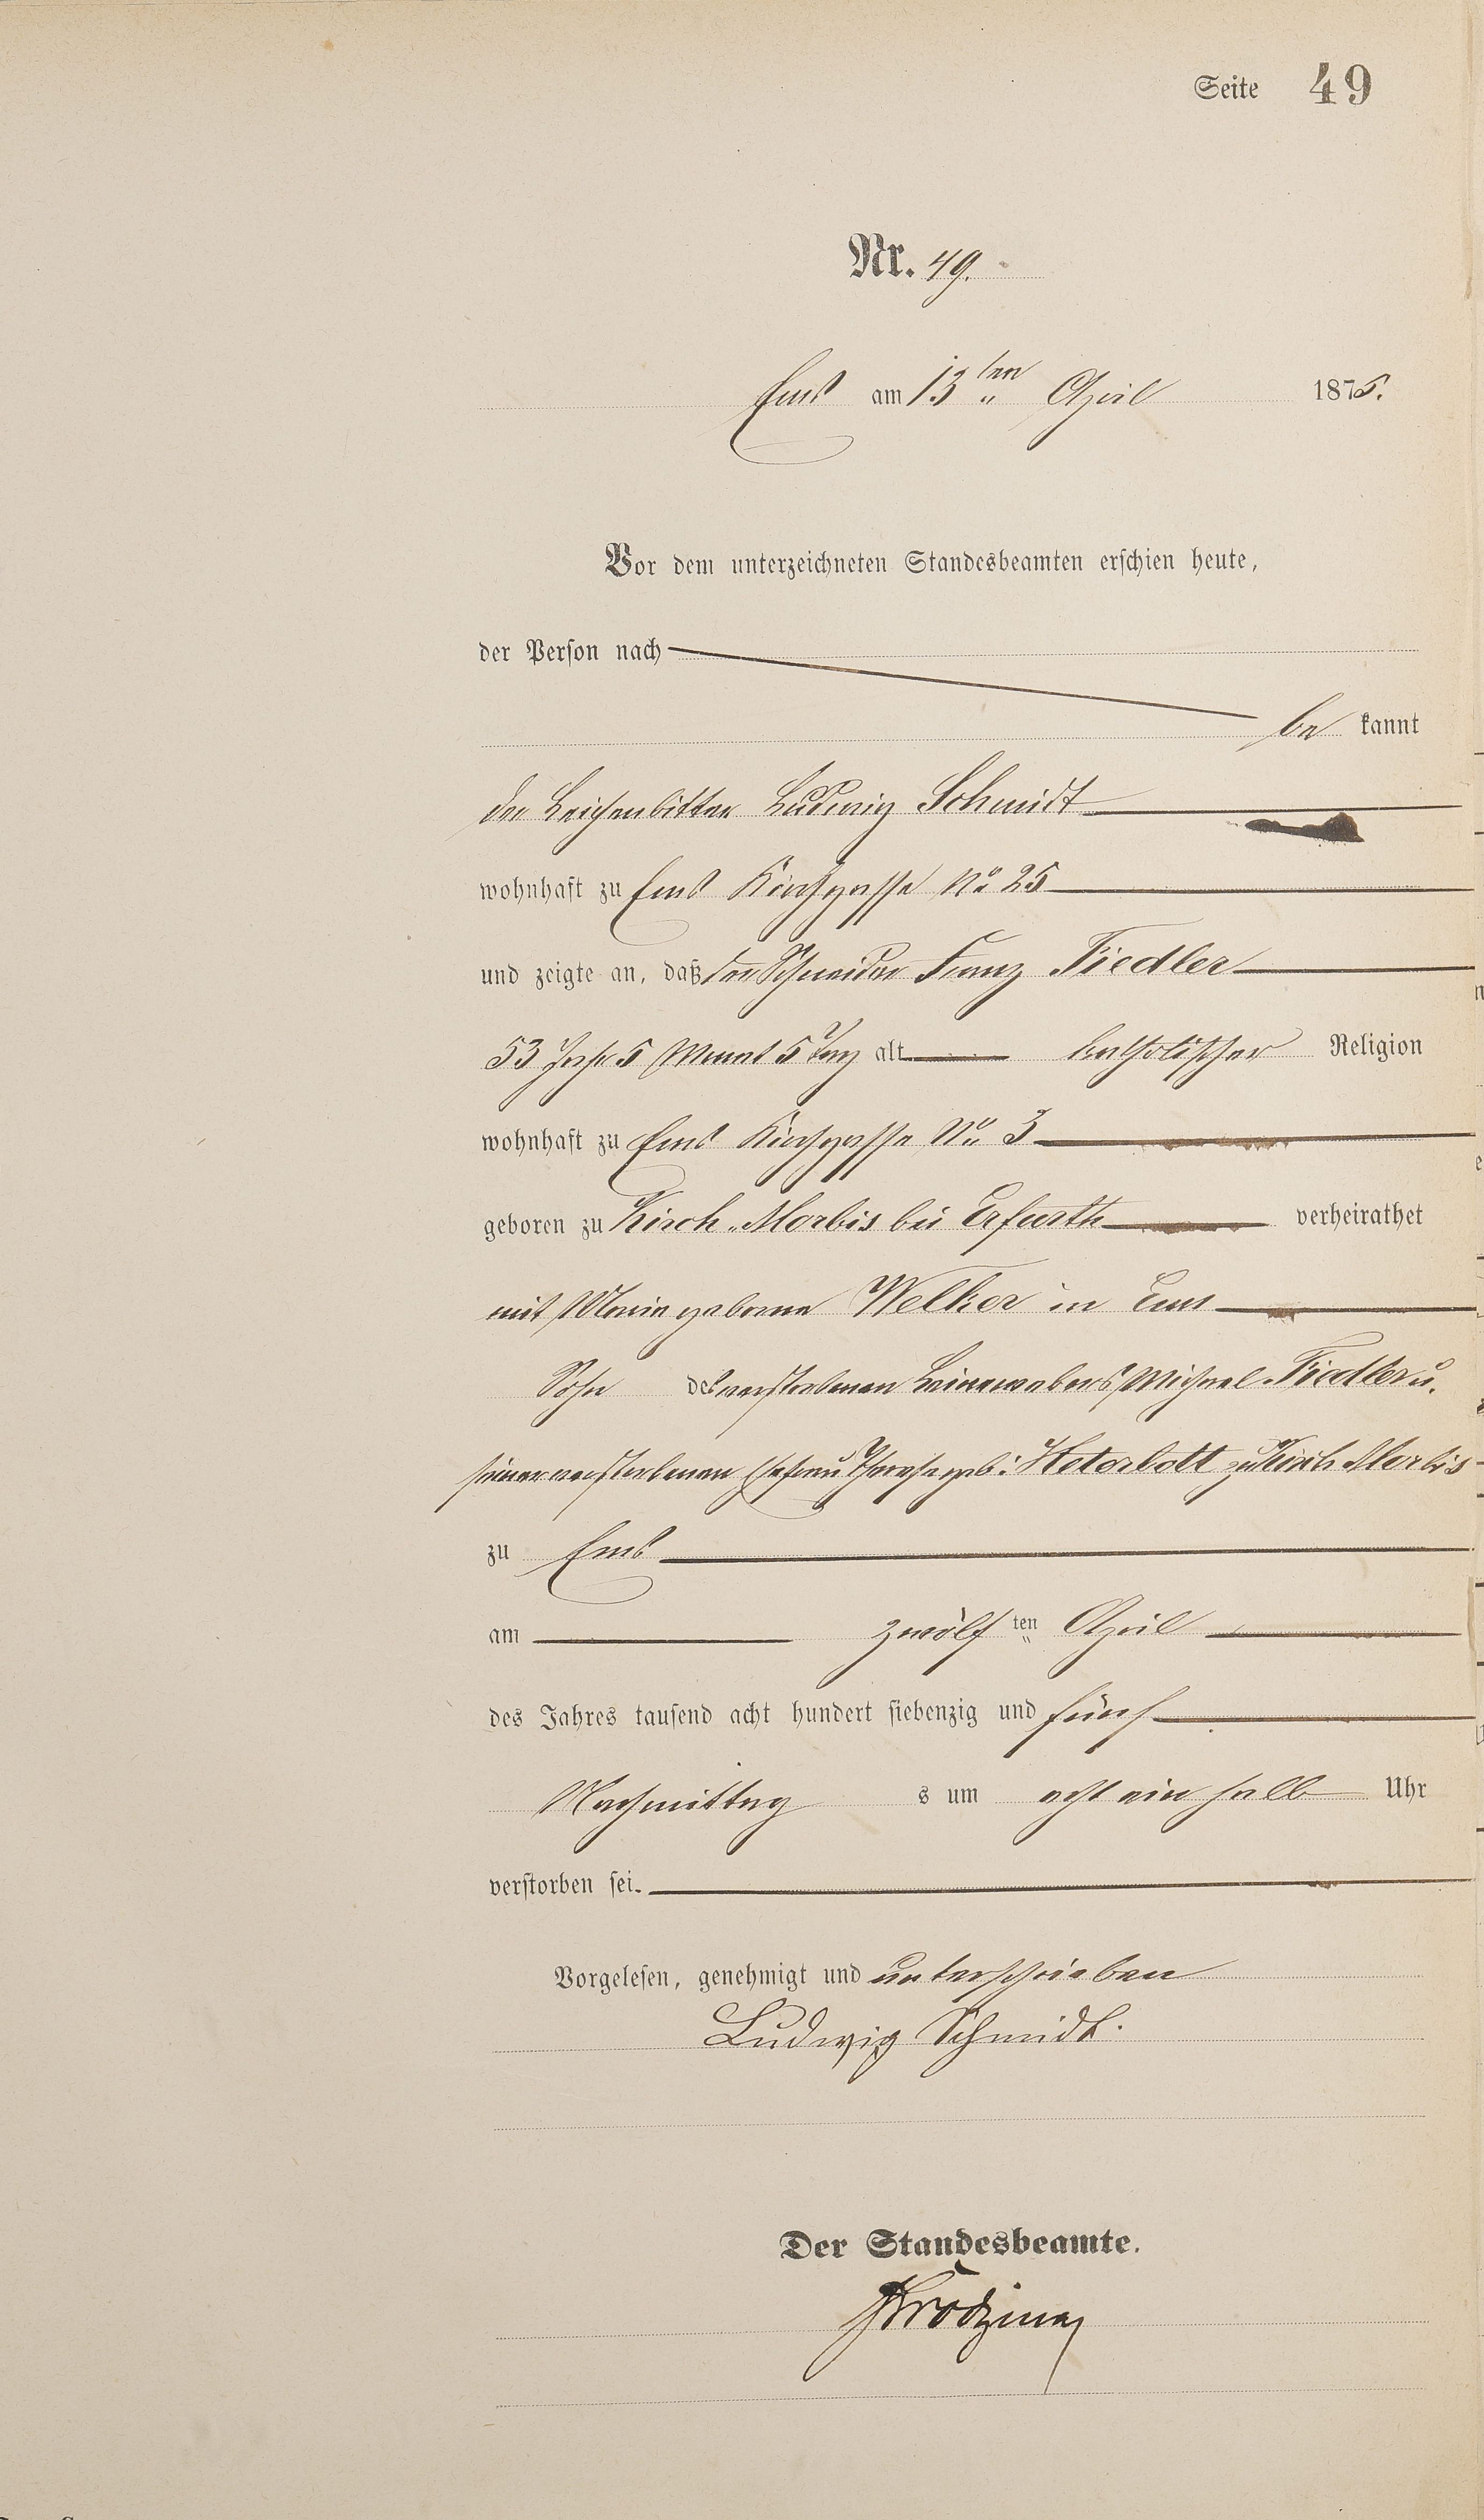 Seite 49
Nr. 49.
Ems am 13ten April 1875.
Vor dem unterzeichneten Standesbeamten erschien heute,
der Person nach
be kannt
der Leichenbitter Ludwig Schmidt
wohnhaft zu Ems Kirchgasse No 25
und zeigte an, daß der Schneider Franz Fiedler
53 Jahr 5 Monat 5 Tag alt katholischer Religion
wohnhaft zu Ems Kirchgasse No 3
geboren zu Kirch-Morbis bei Erfurth verheirathet
mit Maria geborene Welker in Ems
Sohn des verstorbenen Leinewebers Michael Fiedler u.
seiner verstorbenen Ehefrau Therese geb: Heterbott zu Kirch Morbis
zu Ems
am zwölf ten April
des Jahres tausend acht hundert siebenzig und fünf
Nachmittag s um acht ein halb Uhr
verstorben sei.
Vorgelesen, genehmigt und unterschrieben
Ludwig Schmidt.
Der Standesbeamte.